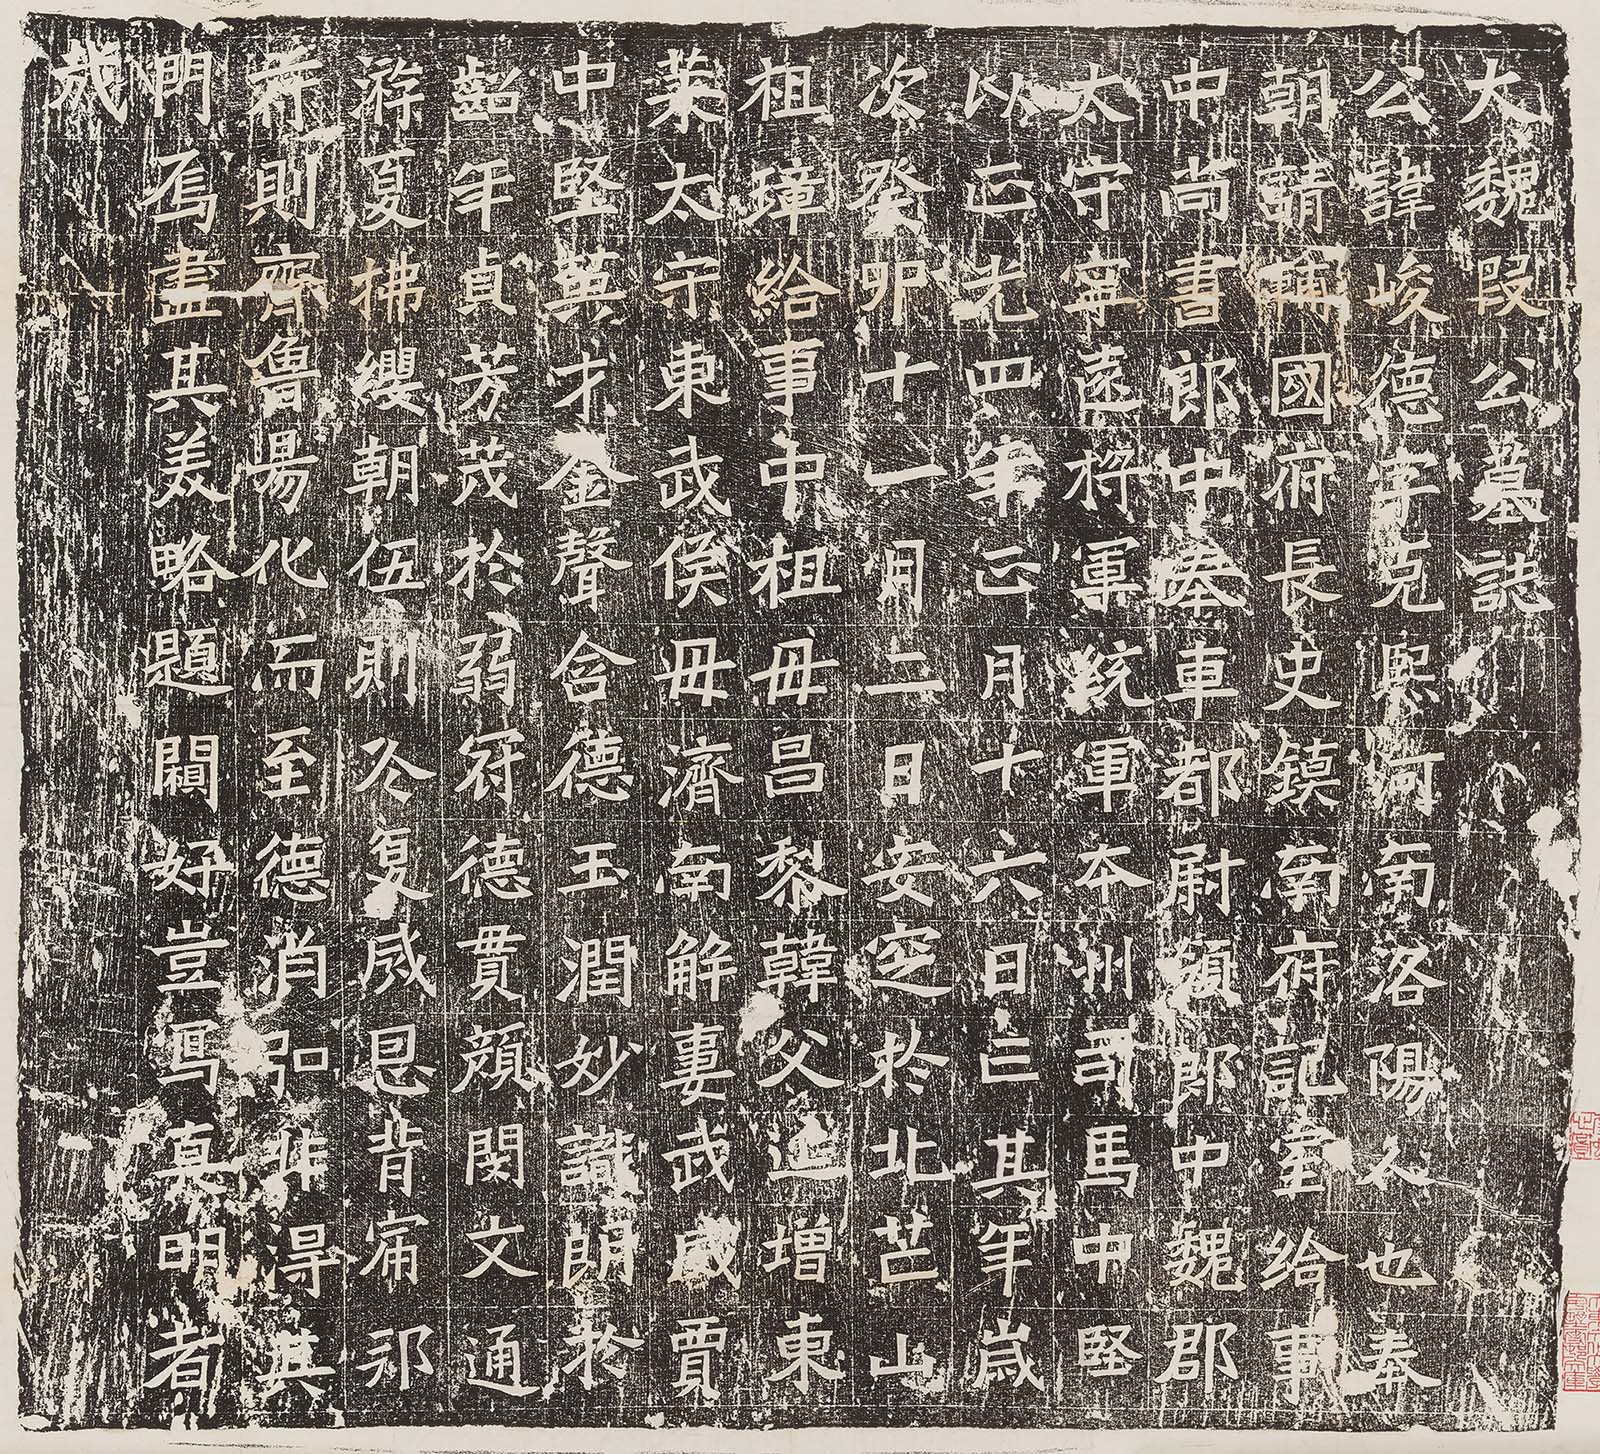 大魏段公墓誌
公諱峻德字克熙河南洛陽人也奉
朝請輔國府長史鎮南府記室給事
中尚書郎中奉車都尉領郎中魏郡
太守寧遠將軍統軍本州司馬中堅
以正光四年正月十六日亡其年歲
次癸卯十一月二日安窆於北芒山
祖璋給事中祖母昌黎韓父追增東
萊太守東武侯母濟南解妻武威賈
中堅英才金聲含德玉潤妙識朗於
齠年貞芳茂於弱冠德貫顏閔文通
游夏拂纓朝伍則冬复威恩背甯邦
符則齊魯易化而至德消弘非得其
門焉盡其美略題好豈寫真明者
哉